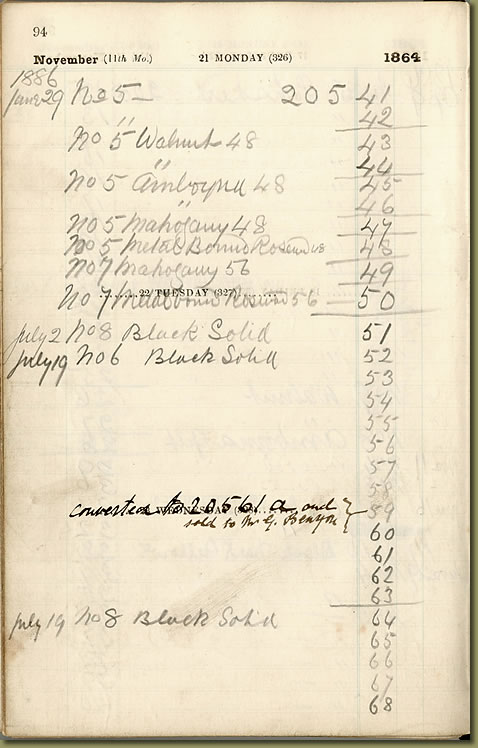 94
November (11th Mo.) 21 MONDAY (326) 1864
1886
June 29 No 5 — 205 41
42
No 5 Walnut 48 43
44
No 5 Amboyna 48 45
46
No 5 Mahogany 48 47
No 5 Metal Bound Rosewood 48
No 7 Mahogany 56 49
22 TUESDAY (327)
No 7 Metal bound Rosewood 56 50
July 2 No 8 Black Solid 51
July 19 No 6 Black Solid 52
53
54
55
56
57
58
converted to 20561 a and 59
sold to Mr G. Benyon
60
61
62
63
July 19 No 8 Black Solid 64
65
66
67
68